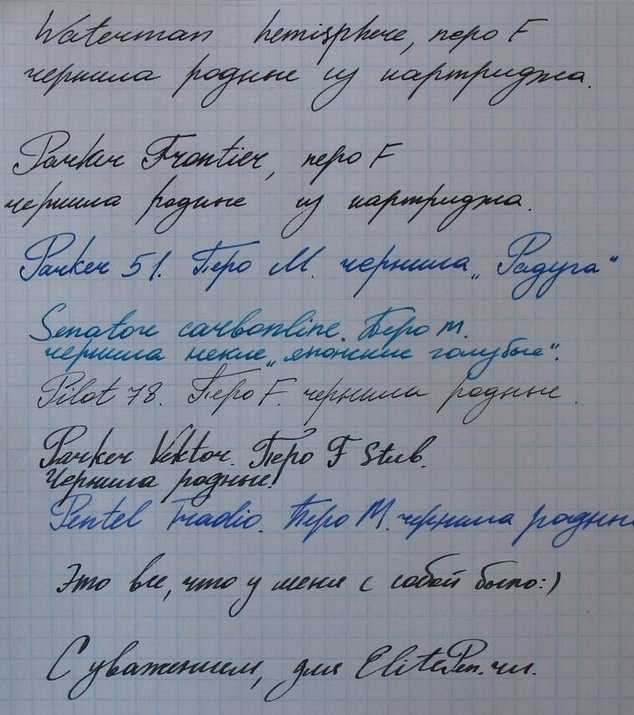 Waterman hemisphere, перо F
чернила родные из картриджа.
Parker Frontier, перо F
чернила родные из картриджа.
Parker 51. Перо М. чернила „Радуга“
Senator carbonline. Перо м.
чернила некие „японские голубые“.
Pilot 78. Перо F. чернила родные.
Parker Vektor. Перо F Stub.
Чернила родные!
Pentel Tradio. Перо М. чернила родные
Это все, что у меня с собой было:)
С уважением, для ElitePen.чи.